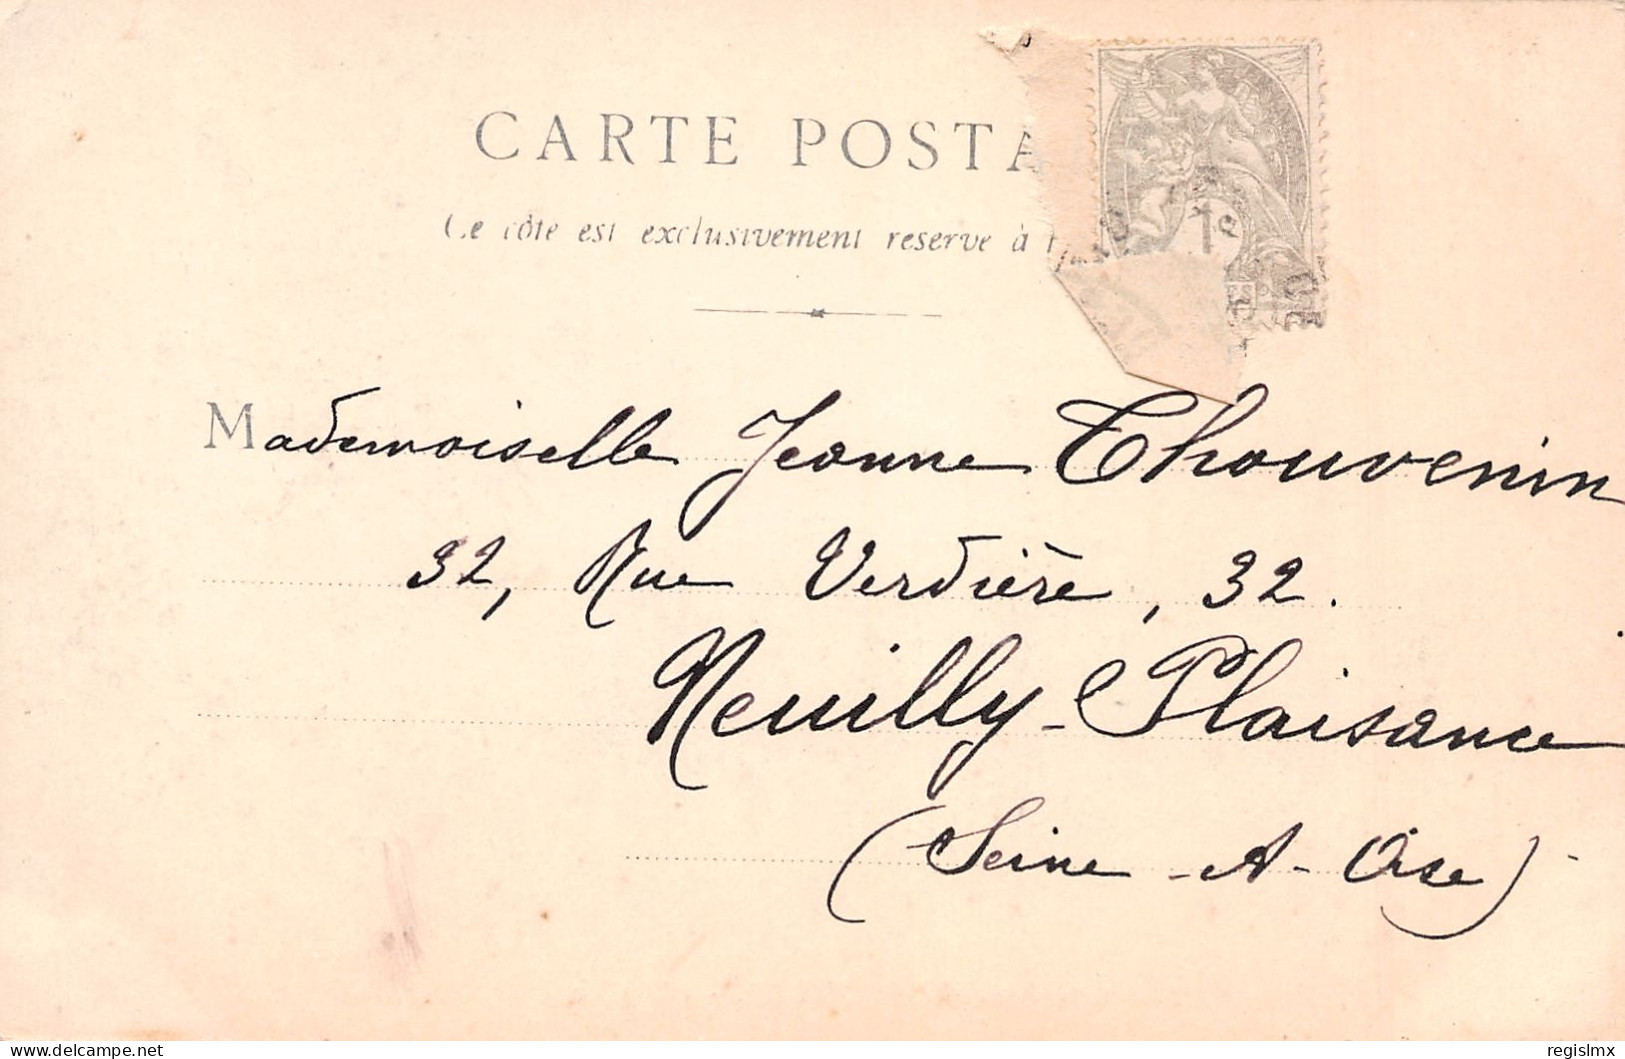 CARTE POSTA
Ce côté est exclusivement reserve à
1c
Mademoiselle Jeanne Thouvenin
32, Rue Verdière, 32.
Neuilly-Plaisance
(Seine-A-Oise)
delcampe.net
regislmx